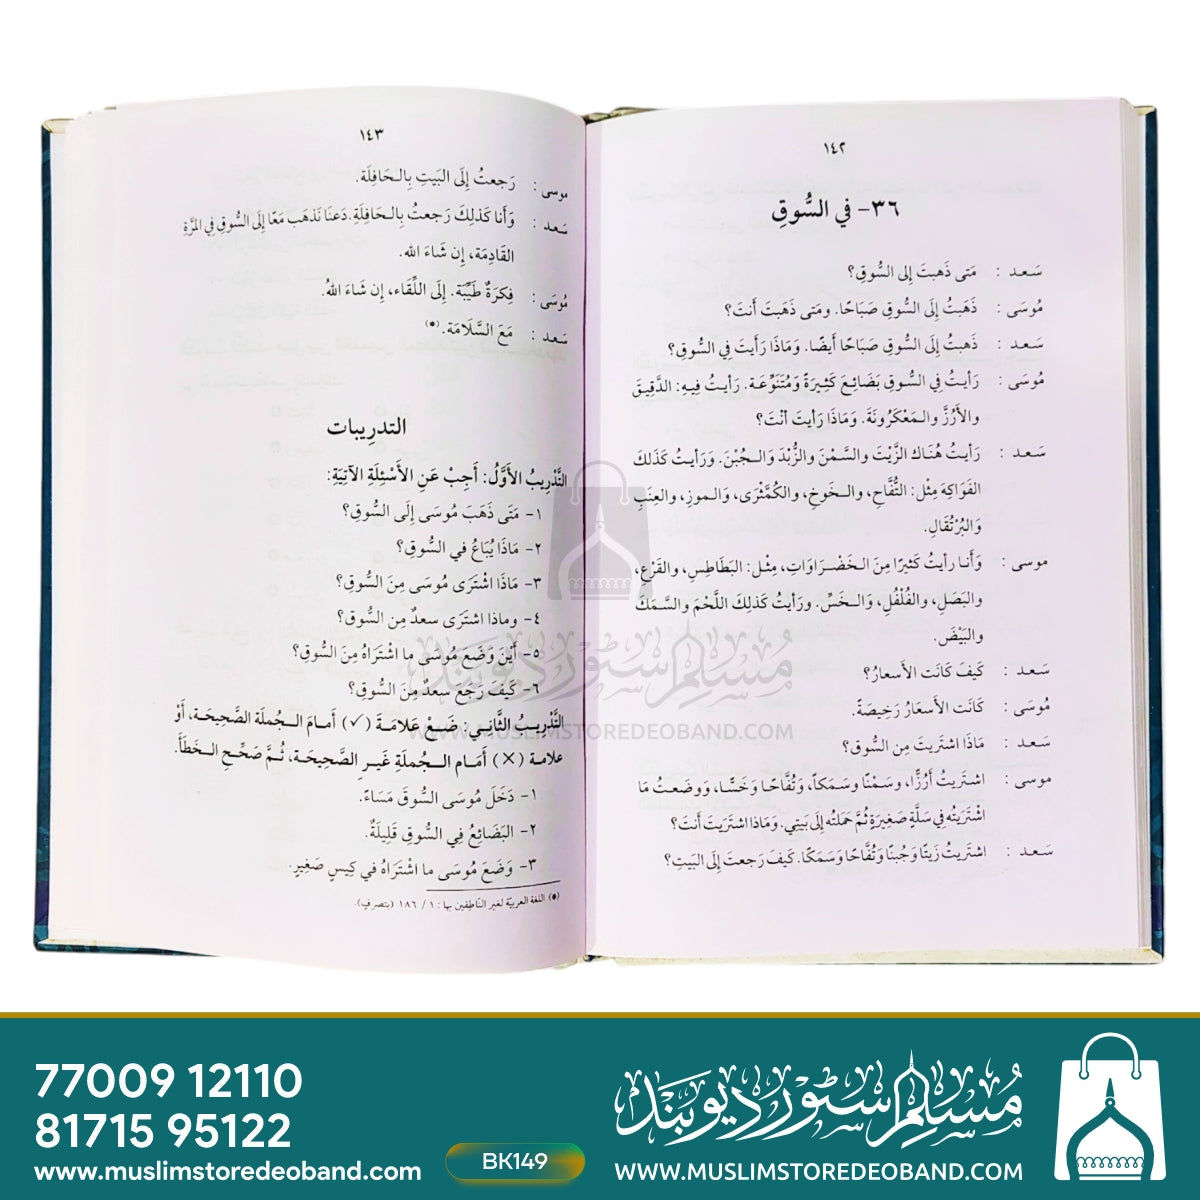 ١٤٢
٣٦- في السُّوقِ
سَـعـد : مَتى ذَهبتَ إِلى السُّوقِ؟
مُوسَى : ذَهَبتُ إِلَى السُّوقِ صَبَاحًا. ومَتى ذَهَبتَ أَنتَ؟
سَـعـد : ذَهبتُ إِلَى السُّوقِ صَبَاحًا أَيضًا. وَمَاذَا رَأَيتَ فِي السُّوقِ؟
مُوسَى : رَأَيتُ فِي السُّـوقِ بَضَائِـعَ كَثِيـرَةً وَمُتَنَوِّعَـة. رَأَيتُ فِيـهِ: الدَّقِيـقَ
والأَرُزَّ والـمَعْكَرُونَةَ. وَمَاذَا رَأَيتَ أَنْتَ؟
سَـعـد : رَأَيتُ هُنَاك الزَّيْتَ والسَّمْنَ والزُّبْدَ وَالـجُبْنَ. وَرَأَيتُ كَذَلكَ
الفَوَاكِهَ مِثْلَ: التُّفَّاحِ، والـخَوخِ، والكُمَّثْرَى، وَالـموزِ، والعِنَبِ
وَالبُرْتُقَالِ.
موسى : وَأَنـا رأيتُ كَثيرًا مِنَ الـخَضْـرَاوَاتِ، مِثْـل: البَطَاطِسِ، والقَرْعِ،
والبَصَلِ، والفُلْفُلِ، وَالـخَسِّ. ورَأيتُ كَذلِكَ اللَّحْمَ والسَّمَكَ
والبَيْضَ.
سَـعـد : كَيفَ كَانَت الأَسعارُ؟
مُوسَى : كَانَت الأَسعَارُ رَخِيصَةً.
سَـعـد : مَاذَا اشتَرَيتَ مِن السُّوقِ؟
موسى : اشتَريتُ أَرُزًّا، وسَمْنًا وسَمَكاً، وَتُفَّاحًـا وَخَسًّـا، وَوضَعتُ مَا
اشْتَرَيتُه فِي سَلَّةٍ صَغِيرَةٍ ثُمَّ حَملتُه إِلَى بَيتِي. وَمَاذا اشتَرَيتَ أَنتَ؟
سَـعـد : اشتَريتُ زَيتًا وَجُبنًا وَتُفَّاحًا وَسَمَكًا. كَيفَ رَجعتَ إِلَى البَيتِ؟
١٤٣
موسى : رَجعتُ إِلَى البَيتِ بِالـحَافِلَة.
سَعد : وَأَنا كَذلِكَ رَجعتُ بِالـحَافِلَةِ. دَعنَا نَذهَب مَعًا إِلَى السُّوقِ فِي المَرَّةِ
القَادِمَة، إِن شَاءَ الله.
مُوسَى : فِكرَةٌ طَيِّبَة. إِلَى اللِّقَاء، إِن شَاءَ اللهُ.
سَعد : مَعَ السَّلَامَة. (*)
التدرِيبات
التَّدْرِيبُ الأَوَّلُ: أَجِبْ عَنِ الأَسْئِلَةِ الآتِيَةِ:
١- مَتَى ذَهَبَ مُوسَى إِلَى السُّوقِ؟
٢- مَاذَا يُبَاعُ في السُّوقِ؟
٣- مَاذَا اشْتَرَى مُوسَى مِنَ السُّوقِ؟
٤- وماذا اشتَرَى سعدٌ مِن السُّوقِ؟
٥- أَيْنَ وَضَعَ مُوسَى ما اشْتَرَاهُ مِنَ السُّوقِ؟
٦- كَيفَ رَجَعَ سعدٌ مِنَ السُّوقِ؟
التَّدْرِيـبُ الثَّانِي: ضَـعْ عَلامَـةَ (✓) أَمـامَ الـجُملَة الصَّحِيحَـة، أَوْ
علامـة (✕) أَمَام الـجُملَةِ غَيـرِ الصَّحِيحَـة، ثُـمَّ صَحِّـحِ الـخَطَأَ.
١- دَخَلَ مُوسَى السُّوقَ مَسَاءً.
٢- البَضَائِعُ فِي السُّوقِ قَلِيلَةٌ.
٣- وَضَعَ مُوسَى ما اشْتَرَاهُ في كِيسٍ صَغِيرٍ.
(*) اللغة العربية لغير النّاطِقين بها: ١ / ١٨٦ (بتصرف).
مُسلِم سٹور دیوبند
WWW.MUSLIMSTOREDEOBAND.COM
77009 12110
81715 95122
www.muslimstoredeoband.com
BK149
مُسلِم سٹور دیوبند
WWW.MUSLIMSTOREDEOBAND.COM